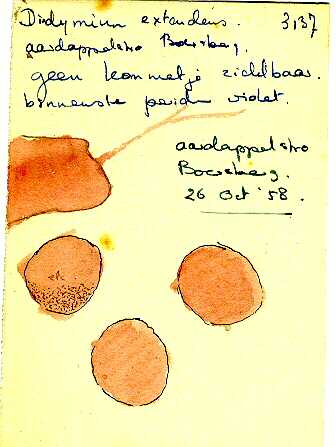 Didymium extendens. 3,37
aardappelstro Boersberg.
geen kommetje zichtbaar.
binnenste peridie violet.
aardappelstro
Boersberg.
26 Oct '58.